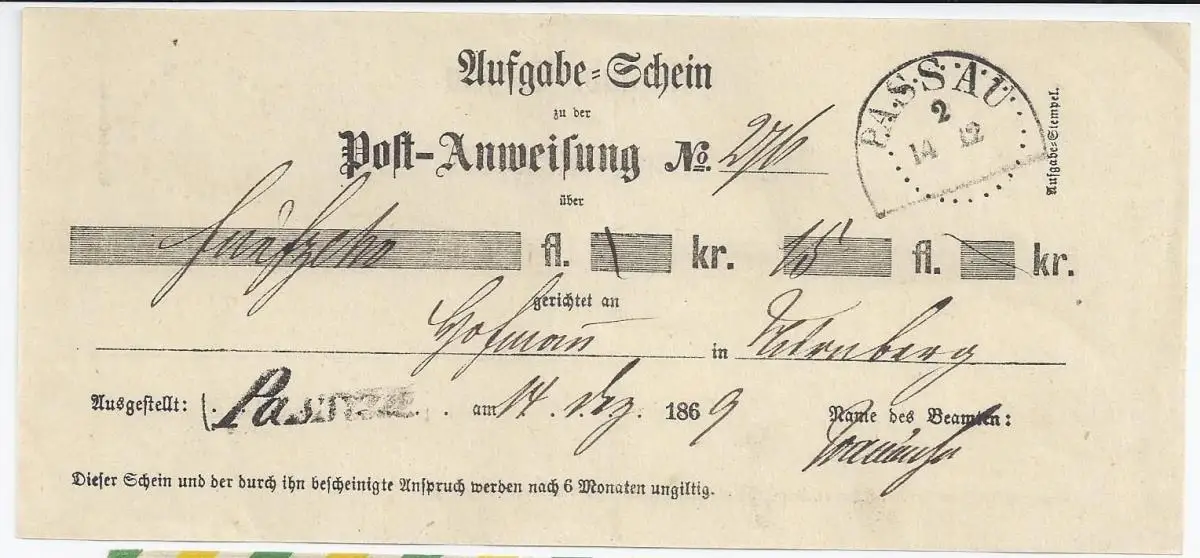 Aufgabe-Schein
zu der
Post-Anweisung No. 276
über
fünfzehn fl. kr. 15 fl. kr.
gerichtet an
Hofmann in Nürnberg
Ausgestellt: Passau am 14. Dez. 1869 Name des Beamten:
Dieser Schein und der durch ihn bescheinigte Anspruch werden nach 6 Monaten ungiltig.
PASSAU
2
14 12
Aufgabe-Stempel.